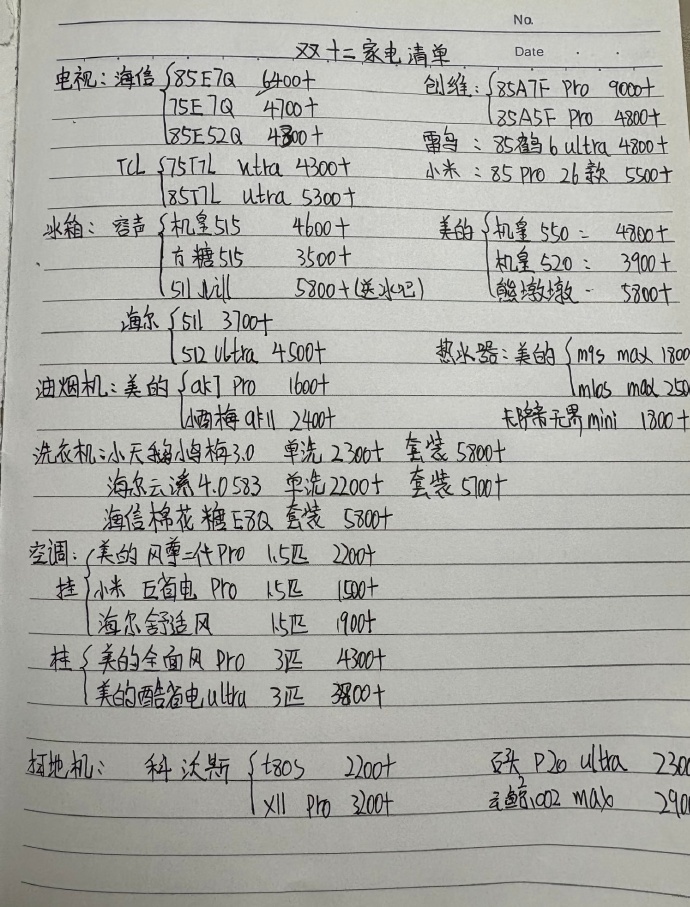 No.
双十二家电清单 Date
电视：海信 85E7Q 6400+ 创维：85A7F Pro 9000+
75E7Q 4700+ 85A5F Pro 4800+
85E52Q 4800+ 雷鸟：85鹤6 ultra 4800+
TCL 75T7L utra 4300+ 小米：85 pro 26款 5500+
85T7L utra 5300+
冰箱：容声 机皇515 4600+ 美的 机皇 550： 4800+
方糖515 3500+ 机皇 520： 3900+
511 5800+(送水吧) 熊墩墩 5800+
海尔 511 3700+
512 ultra 4500+ 热水器：美的 m9s max 1800
油烟机：美的 ak7 Pro 1600+ m10s max 250
小西梅 ak11 2400+ 无界mini 1800+
洗衣机：小天鹅小乌梅3.0 单洗 2300+ 套装 5800+
海尔云溪4.0 583 单洗 2200+ 套装 5700+
海信棉花糖E8Q 套装 5800+
空调： 美的 风尊二代Pro 1.5匹 2200+
挂 小米 巨省电 Pro 1.5匹 1500+
海尔舒适风 1.5匹 1900+
柜 美的全面风 Pro 3匹 4300+
美的酷省电ultra 3匹 3800+
扫地机： 科沃斯 t80s 2200+ 石头 P20 ultra 2300
X11 Pro 3200+ 云鲸 002 max 290